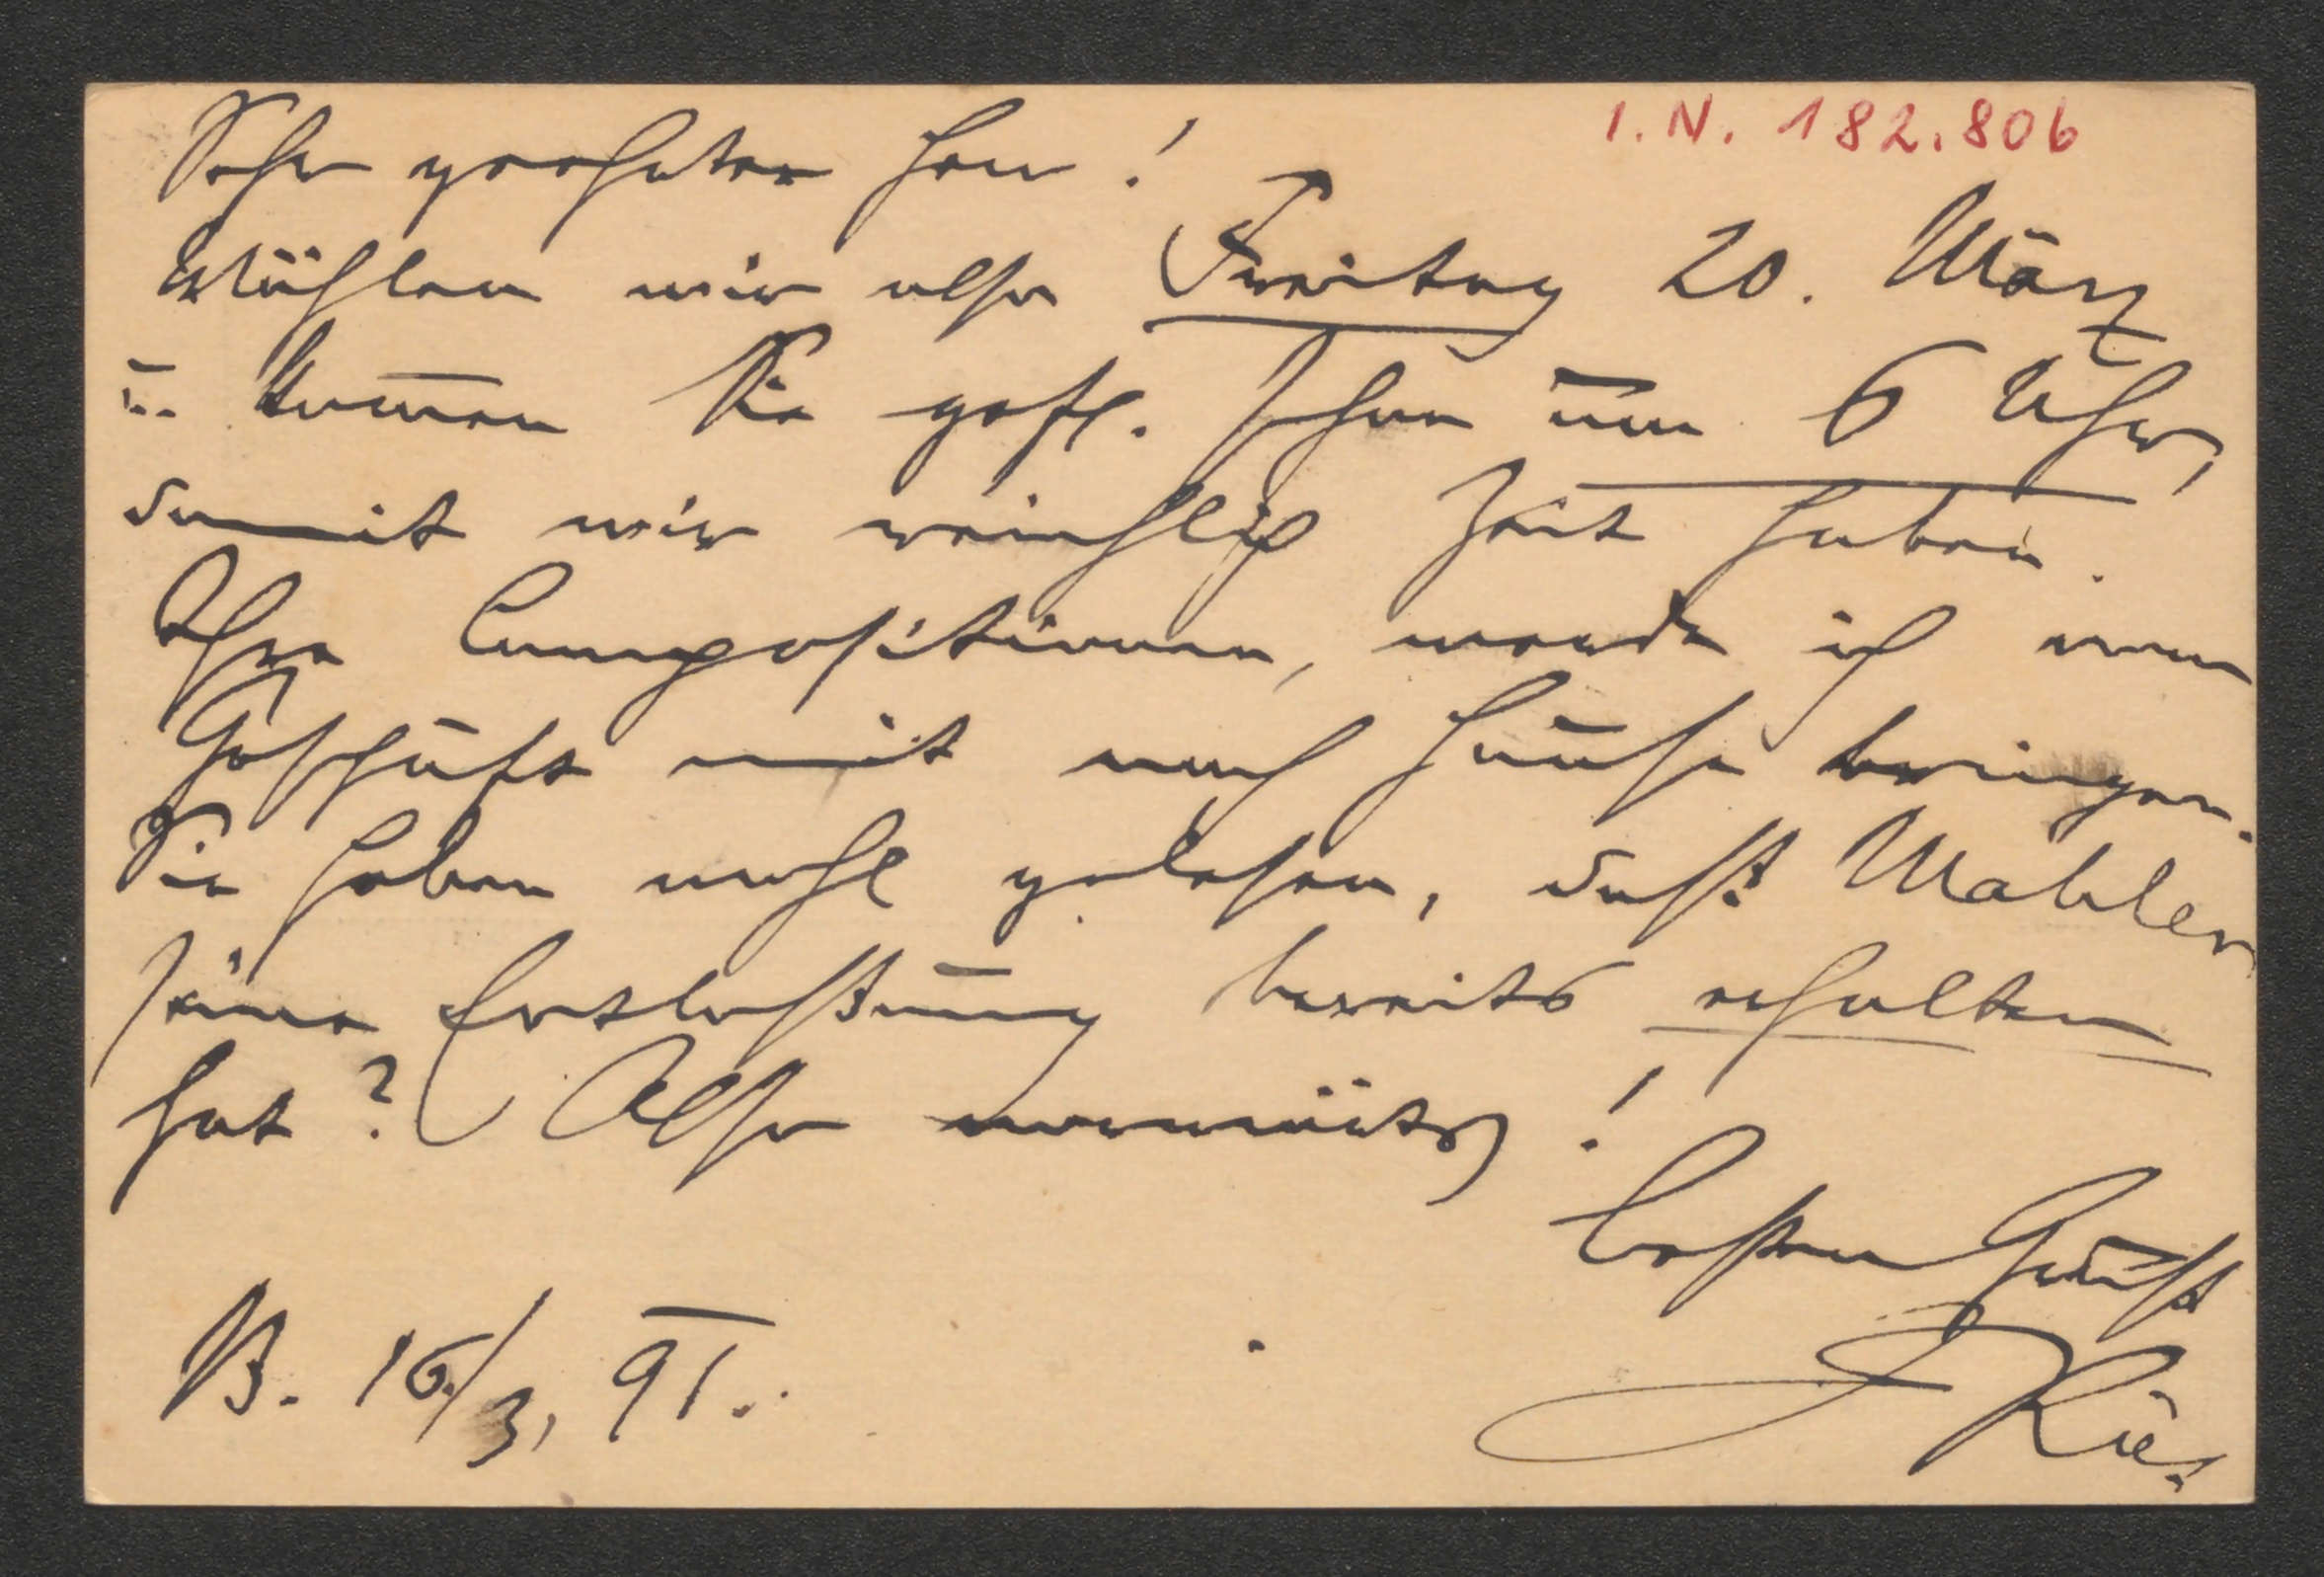 I. N. 182.806
Sehr geehrter Herr!
Wählen wir also Freitag 20. März
u. kom̄en Sie gefl. schon um 6 Uhr,
damit wir reichlich Zeit haben.
Ihre Compositionen, werde ich vom
Geschäft mit nach Hause bringen.
Sie haben wohl gelesen, daß Mahler
seine Entlaßung bereits erhalten
hat? Also vorwärts!
Besten Gruß
F Ries
B. 16./3, 91.